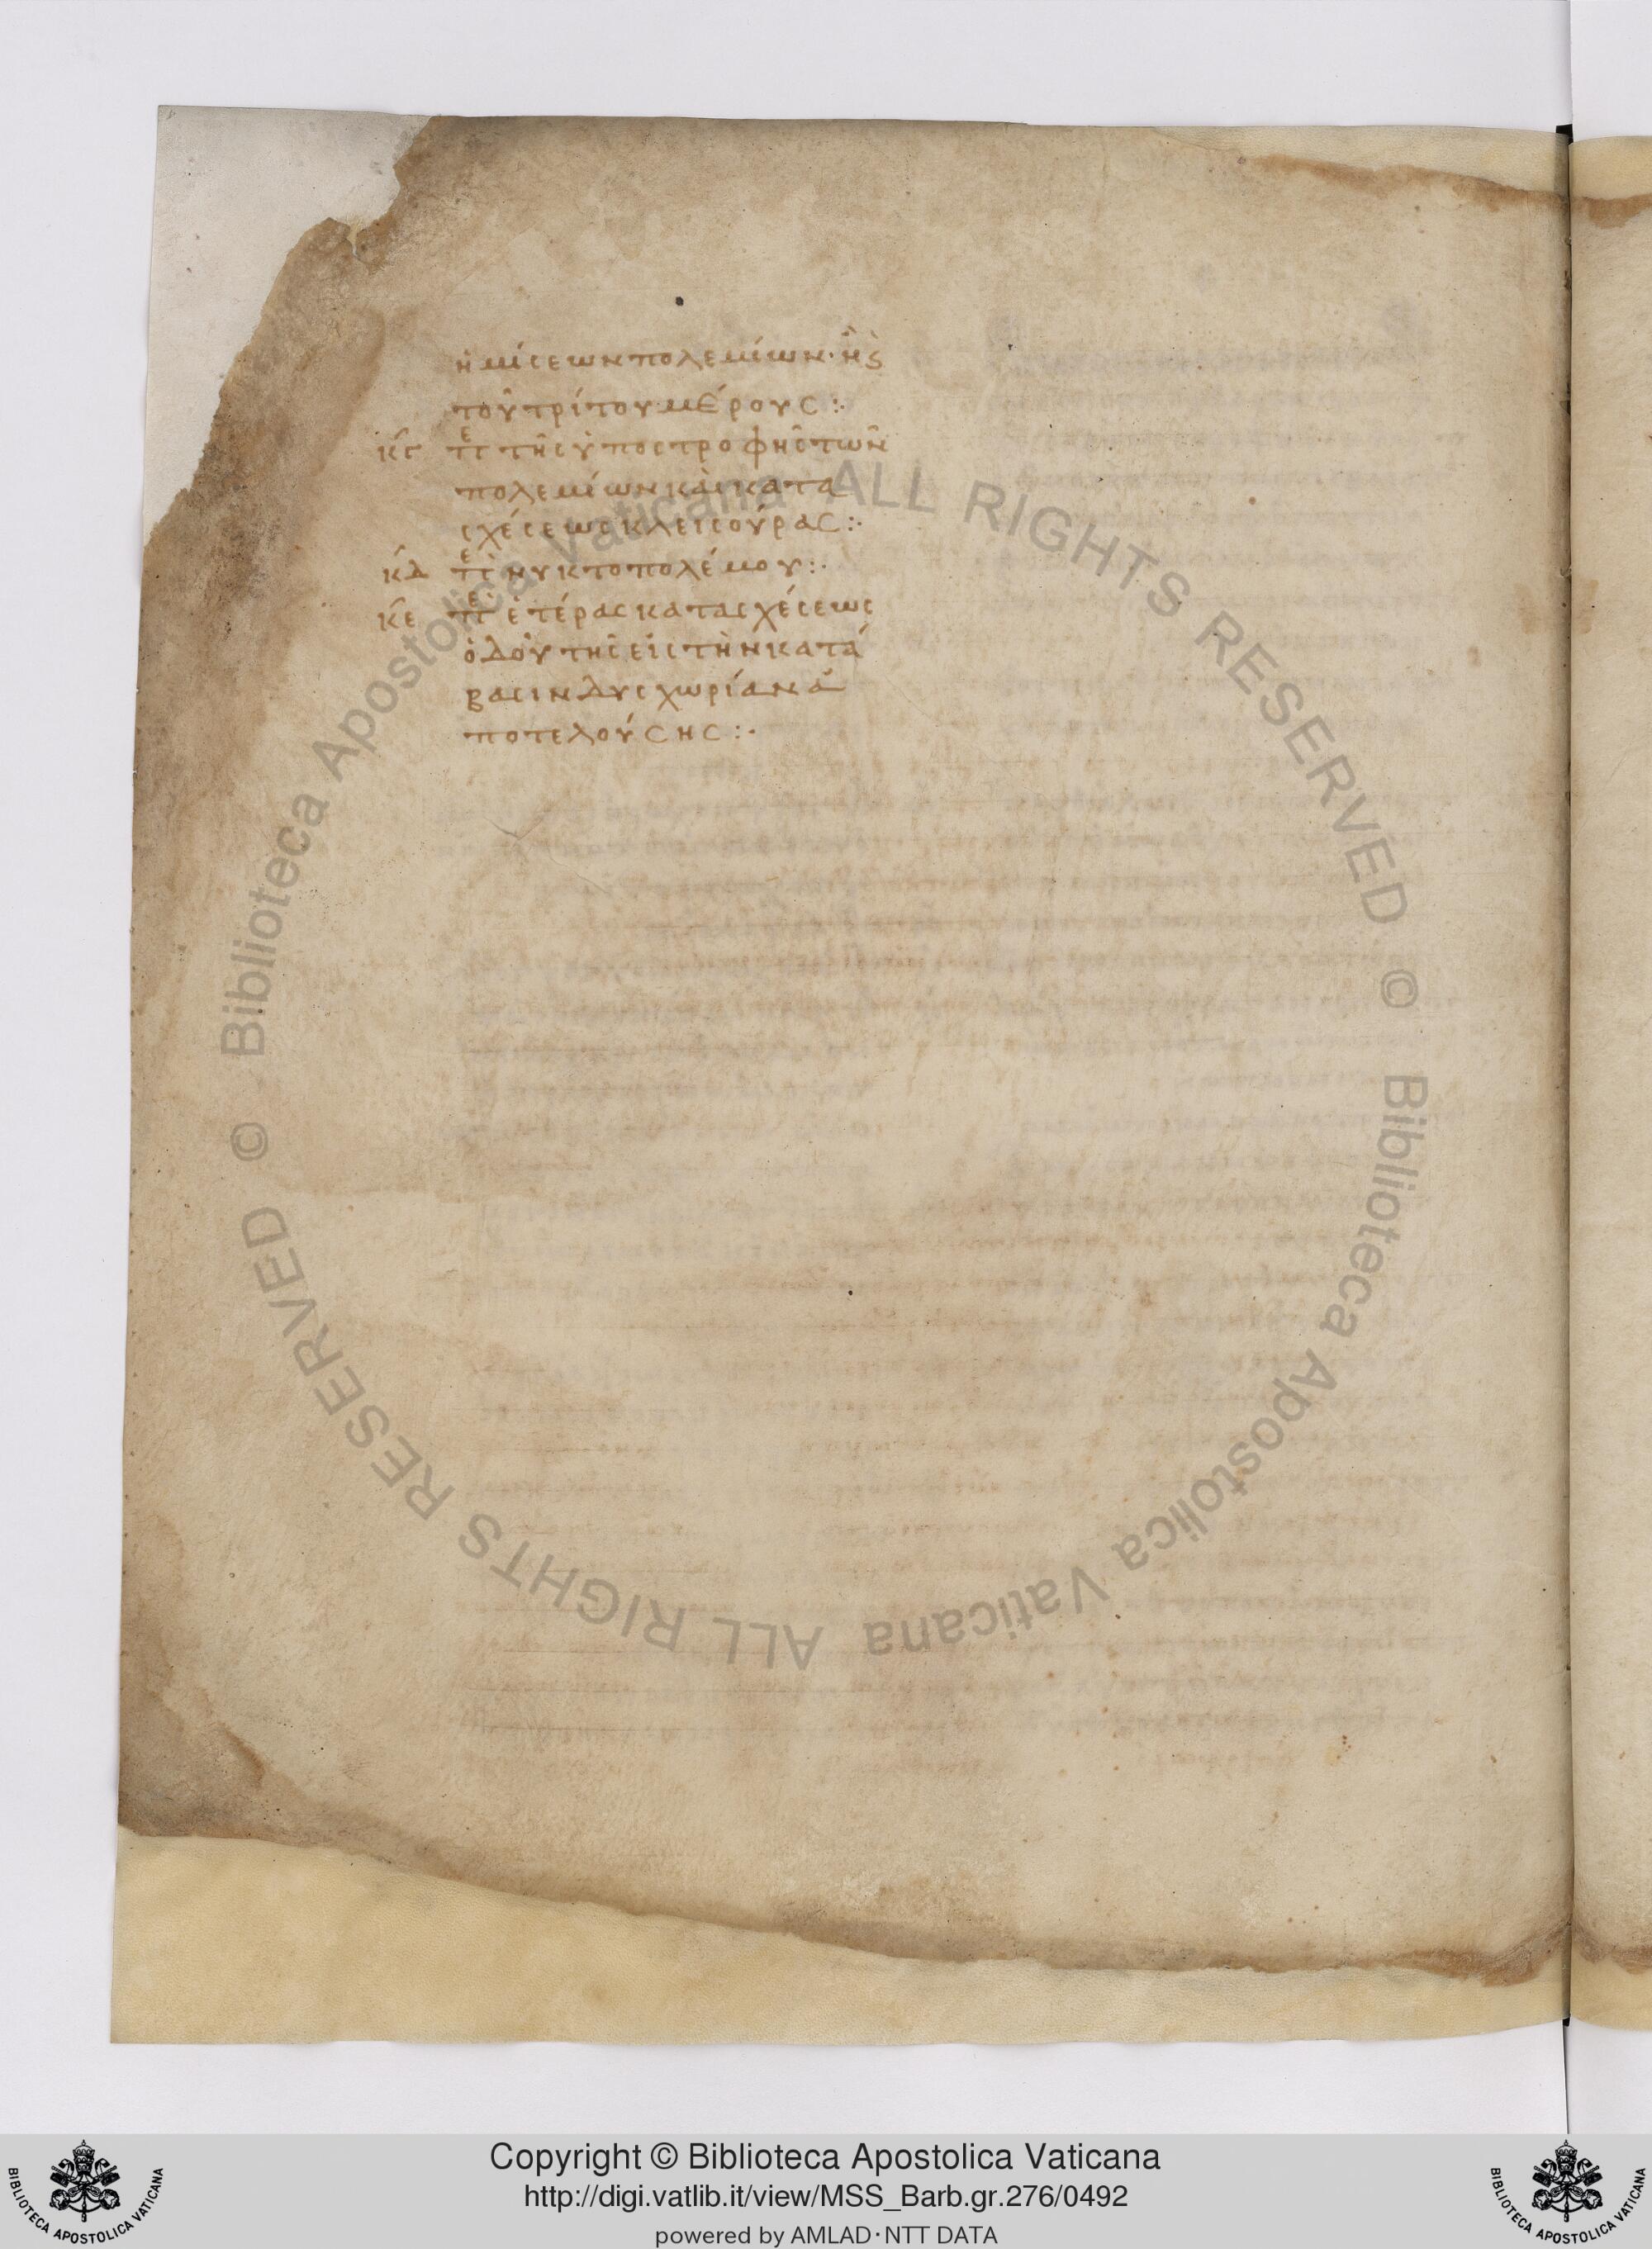 ἡμίσεων πολεμίων· ἢ ς
τοῦ τρίτου μέρους :·
κγ πε τῆς ὑποστροφῆς τῶν
πολεμίων καὶ κατα
σχέσεως κλεισούρας :·
κδ πε νυκτοπολέμου :·
κε πε ἑτέρας κατασχέσεως
ὁδοῦ τῆς εἰς τὴν κατά
βασιν δυσχωρίαν ἀ
ποτελούσης :·
© Biblioteca Apostolica Vaticana ALL RIGHTS RESERVED
© Biblioteca Apostolica Vaticana ALL RIGHTS RESERVED
Copyright © Biblioteca Apostolica Vaticana
http://digi.vatlib.it/view/MSS_Barb.gr.276/0492
powered by AMLAD·NTT DATA
BIBLIOTECA APOSTOLICA VATICANA
BIBLIOTECA APOSTOLICA VATICANA